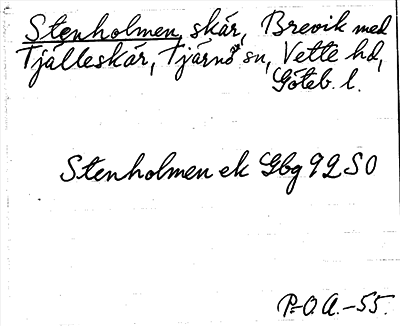 Stenholmen, skär, Brevik med
Tjälleskär, Tjärnö sn, Vette hd,
Göteb. l.
Stenholmen ek Gbg 92 SO
P.-O.A.-55.